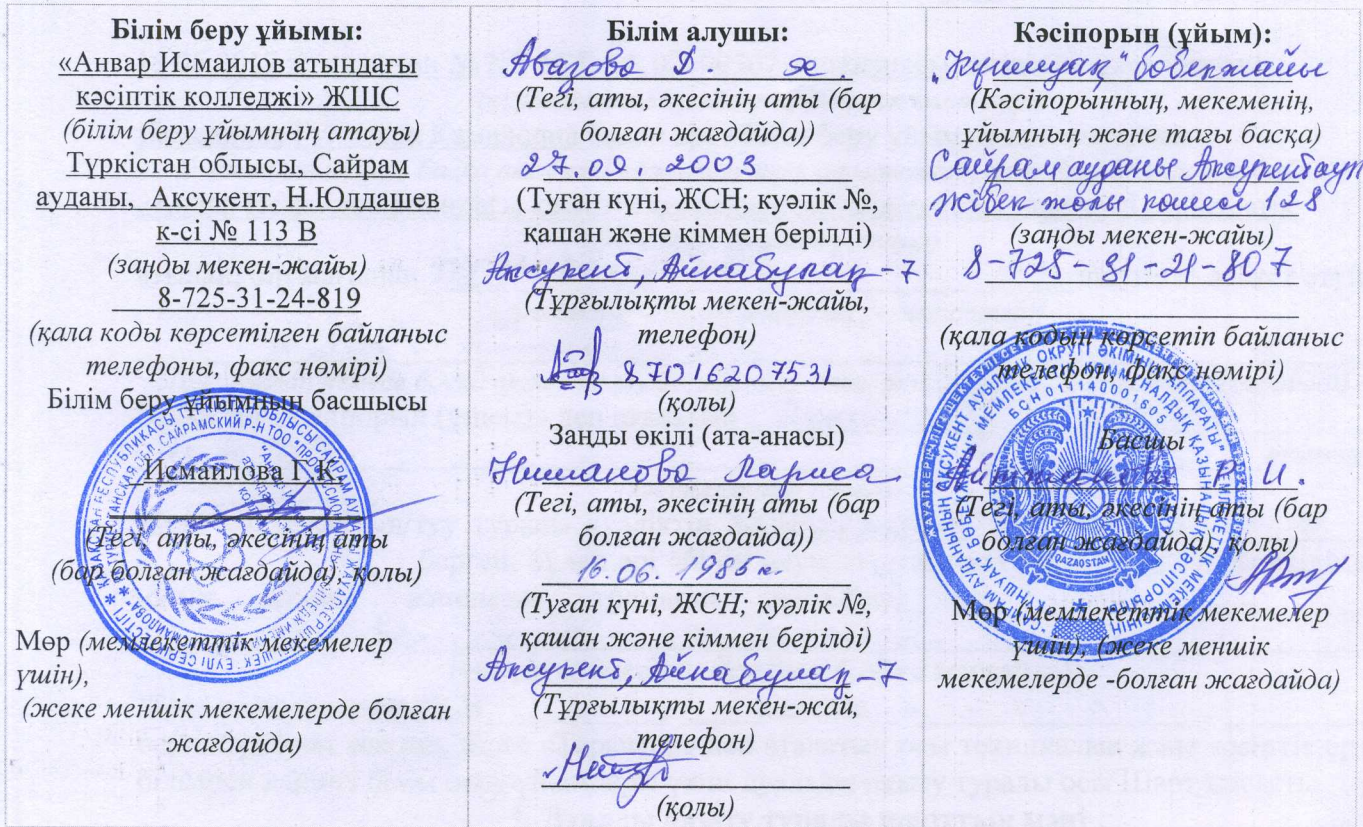 Білім беру ұйымы:
«Анвар Исмаилов атындағы
кәсіптік колледжі» ЖШС
(білім беру ұйымның атауы)
Түркістан облысы, Сайрам
ауданы, Аксукент, Н.Юлдашев
к-сі № 113 В
(заңды мекен-жайы)
8-725-31-24-819
(қала коды көрсетілген байланыс
телефоны, факс нөмірі)
Білім беру ұйымның басшысы
Исмаилова Г.К.
(Тегі, аты, әкесінің аты
(бар болған жағдайда), қолы)
Мөр (мемлекеттік мекемелер
үшін),
(жеке меншік мекемелерде болған
жағдайда)
Білім алушы:
Авазова Д.
(Тегі, аты, әкесінің аты (бар
болған жағдайда))
27.09.2003
(Туған күні, ЖСН; куәлік №,
қашан және кіммен берілді)
Аксукент, Айнабулақ-7
(Тұрғылықты мекен-жайы,
телефон)
87016207531
(қолы)
Заңды өкілі (ата-анасы)
Нишанова Лариса
(Тегі, аты, әкесінің аты (бар
болған жағдайда))
16.06.1985
(Туған күні, ЖСН; куәлік №,
қашан және кіммен берілді)
Аксукент, Айнабулақ-7
(Тұрғылықты мекен-жай,
телефон)
(қолы)
Кәсіпорын (ұйым):
бөбекжайы
(Кәсіпорынның, мекеменің,
ұйымның және тағы басқа)
Сайрам ауданы Аксукент ауп
Жібек-жолы көшесі 128
(заңды мекен-жайы)
8-725-31-21-807
(қала кодын көрсетіп байланыс
телефон, факс нөмірі)
Басшы
(Тегі, аты, әкесінің аты (бар
болған жағдайда), қолы)
Мөр (мемлекеттік мекемелер
үшін), (жеке меншік
мекемелерде -болған жағдайда)